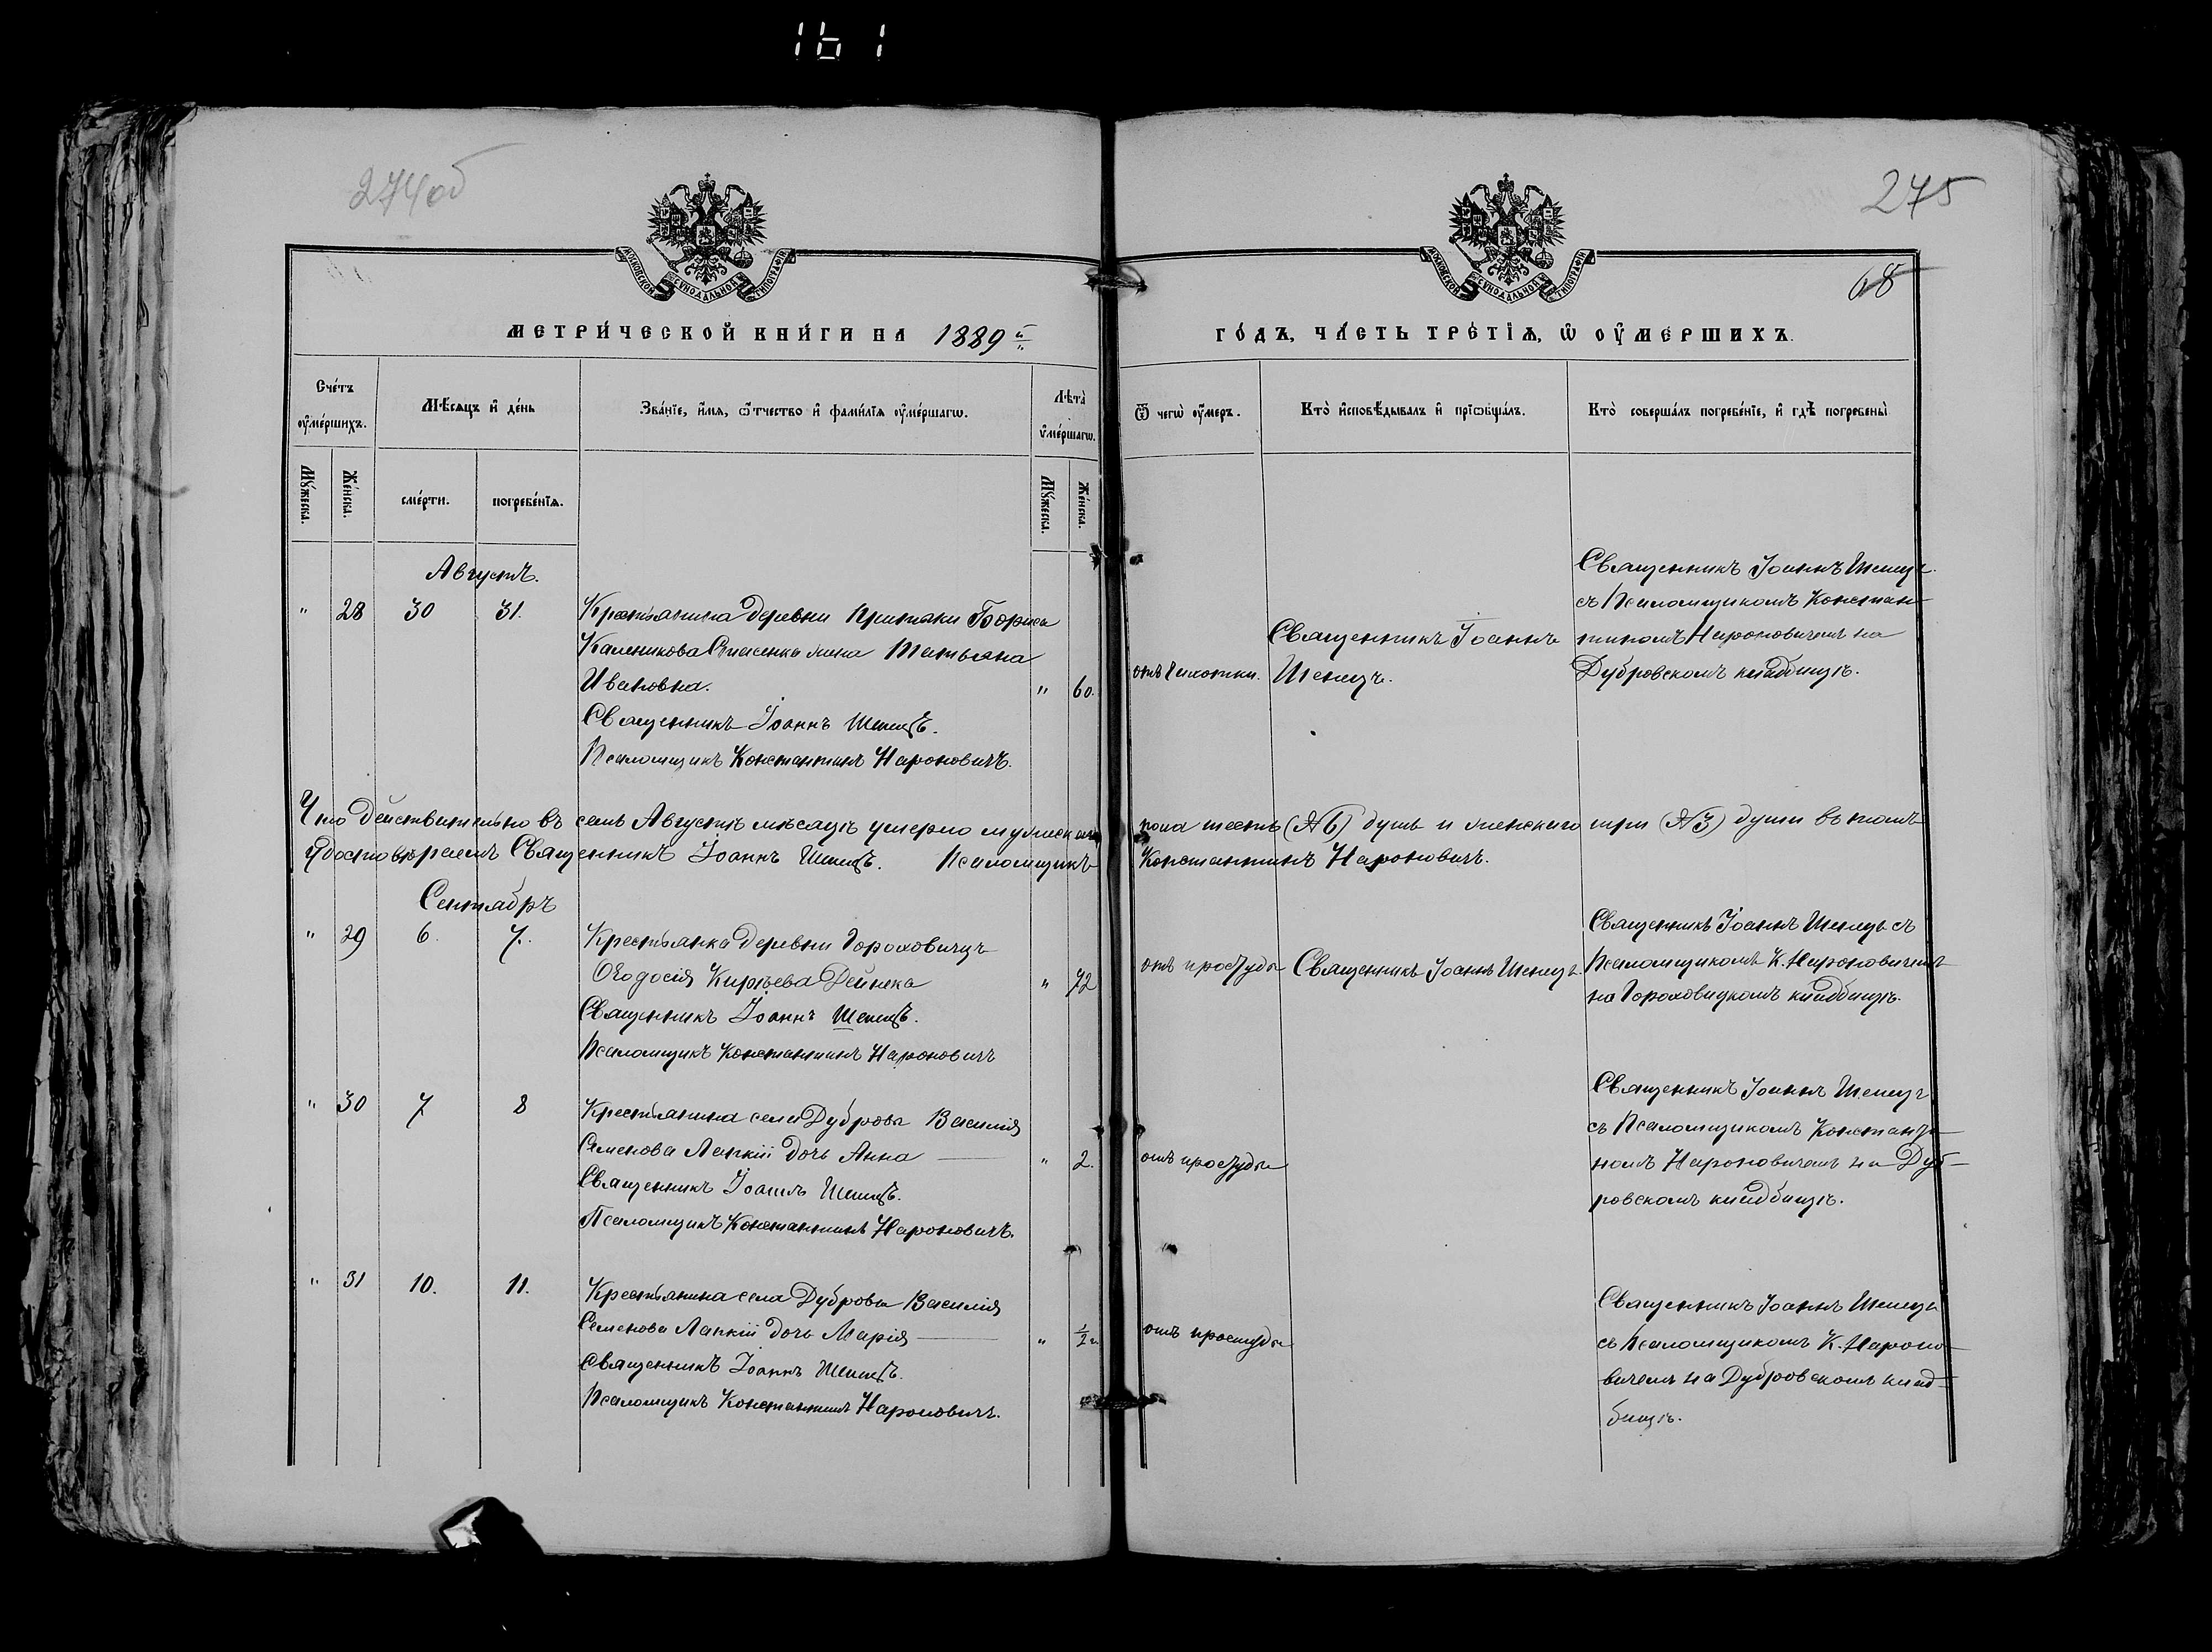 161
274об
275
68
МОСКОВСКОЙ СѴНОДАЛЬНОЙ ТИПОГРАФІИ
МОСКОВСКОЙ СѴНОДАЛЬНОЙ ТИПОГРАФІИ
МЕТРИ́ЧЕСКОЙ КНИ́ГИ НА 1889 й
ГО́ДЪ, ЧА́СТЬ ТРЕ́ТІѦ, Ѡ҆ ОУ҆МЕРШИХЪ.
Сче́тъ оу҆ме́ршихъ.
Мѣ́сѧцъ и҆ де́нь
Зва́нїе, и҆́мѧ, ѻ҆́тчество и҆ фами́лїѧ оу҆ме́ршагѡ.
Лѣта̀ оу҆ме́ршагѡ.
Ѿ чегѡ̀ оу҆́меръ.
Кто̀ и҆сповѣ́дывалъ и҆ прїѡбща́лъ.
Кто̀ соверша́лъ погребе́нїе, и҆ гдѣ̀ погребены̀
Му́жеска.
Же́нска.
сме́рти.
погребе́нїѧ.
Му́жеска.
Же́нска.
Августъ.
" 28 30 31.
Крестьянина деревни Бориса
Каленикова жена Татьяна
Ивановна.
" 60.
Священникъ Іоаннъ Шемецъ.
Псаломщикъ Константинъ Нароновичъ.
отъ чихотки.
Священникъ Іоаннъ
Шемецъ.
Священникъ Іоаннъ Шемецъ
съ Псаломщикомъ Констан-
тиномъ Нароновичемъ на
Дубровскомъ кладбищѣ.
Что действительно въ семъ Августѣ мѣсяцѣ умерло мужескаго пола шесть (№6) душъ и женского три (№3) души въ томъ
удостовѣряемъ Священникъ Іоаннъ Шемецъ. Псаломщикъ Константинъ Нароновичъ.
Сентябрь
" 29 6. 7.
Крестьянка деревни Гороховищъ
Ѳеодосія Кирѣева Дейнека
" 72
Священникъ Іоаннъ Шемецъ.
Псаломщикъ Константинъ Нароновичъ
отъ простуды
Священникъ Іоаннъ Шемецъ
Священникъ Іоаннъ Шемецъ съ
Псаломщикомъ К. Нароновичемъ
на Гороховицкомъ кладбищѣ.
" 30 7 8
Крестьянина села Дубровы Василія
Семенова Лапкій дочь Анна
" 2.
Священникъ Іоаннъ Шемецъ.
Псаломщикъ Константинъ Нароновичъ.
отъ простуды
Священникъ Іоаннъ Шемецъ
съ Псаломщикомъ Константи-
номъ Нароновичемъ на Дуб-
ровскомъ кладбищѣ.
" 31 10. 11.
Крестьянина села Дубровы Василія
Семенова Лапкій дочь Марія
" 1/2 г.
Священникъ Іоаннъ Шемецъ.
Псаломщикъ Константинъ Нароновичъ.
отъ простуды
Священникъ Іоаннъ Шемецъ
съ Псаломщикомъ К. Нароно-
вичемъ на Дубровскомъ клад-
бищѣ.